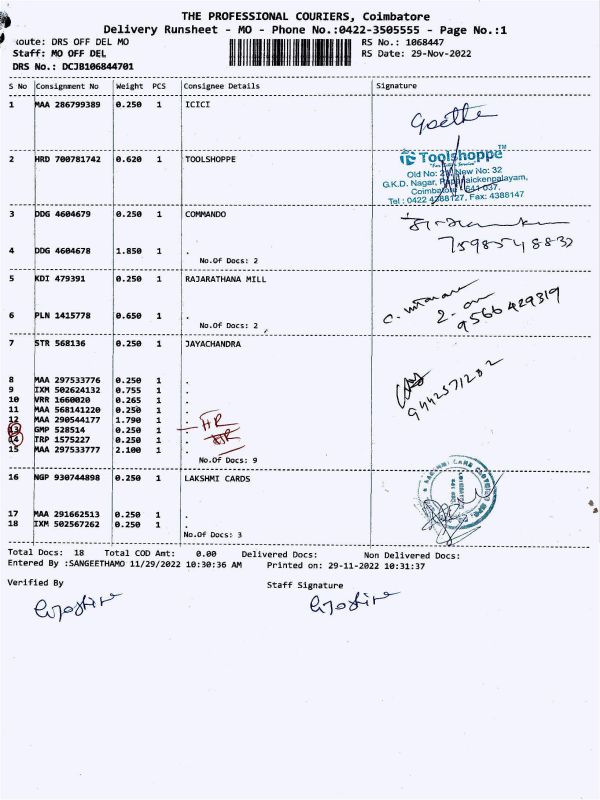 THE PROFESSIONAL COURIERS, Coimbatore
Delivery Runsheet - MO - Phone No.:0422-3505555 - Page No.:1
oute: DRS OFF DEL MO RS No.: 1068447
Staff: MO OFF DEL RS Date: 29-Nov-2022
DRS No.: DCJB106844701
S No Consignment No Weight PCS Consignee Details Signature
1 MAA 286799389 0.250 1 ICICI
2 HRD 700781742 0.620 1 TOOLSHOPPE
Toolshoppe™
Old No: New No: 32
G.K.D. Nagar, Pappanaickenpalayam,
Coimbatore - 641 037.
Tel : 0422 4388127, Fax: 4388147
3 DDG 4604679 0.250 1 COMMANDO
7598548832
4 DDG 4604678 1.850 1 .
No.Of Docs: 2
5 KDI 479391 0.250 1 RAJARATHANA MILL
9566429319
6 PLN 1415778 0.650 1 .
No.Of Docs: 2
7 STR 568136 0.250 1 JAYACHANDRA
9442571282
8 MAA 297533776 0.250 1 .
9 IXM 502624132 0.755 1 .
10 VRR 1660020 0.265 1 .
11 MAA 568141220 0.250 1 .
12 MAA 290544177 1.790 1 .
13 GMP 528514 0.250 1 . HR
14 TRP 1575227 0.250 1 . HR
15 MAA 297533777 2.100 1 .
No.Of Docs: 9
16 NGP 930744898 0.250 1 LAKSHMI CARDS
17 MAA 291662513 0.250 1 .
18 IXM 502567262 0.250 1 .
No.Of Docs: 3
Total Docs: 18 Total COD Amt: 0.00 Delivered Docs: Non Delivered Docs:
Entered By :SANGEETHAMO 11/29/2022 10:30:36 AM Printed on: 29-11-2022 10:31:37
Verified By Staff Signature